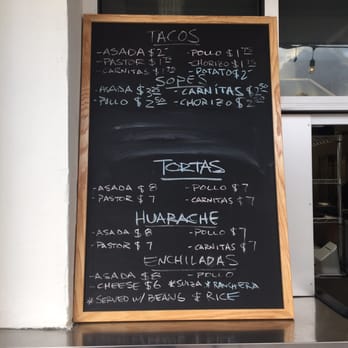 TACOS
-ASADA $2 -POLLO $1.75
-PASTOR $1.75 -CHORIZO $1.75
-CARNITAS $1.75 -POTATO $2
SOPES
-ASADA $3.25 -CARNITAS $2.50
-POLLO $2.50 -CHORIZO $2.50
TORTAS
-ASADA $8 -POLLO $7
-PASTOR $7 -CARNITAS $7
HUARACHE
-ASADA $8 -POLLO $7
-PASTOR $7 -CARNITAS $7
ENCHILADAS
-ASADA $8 -POLLO
-CHEESE $6 *SUIZA *RANCHERA
*SERVED W/ BEANS & RICE